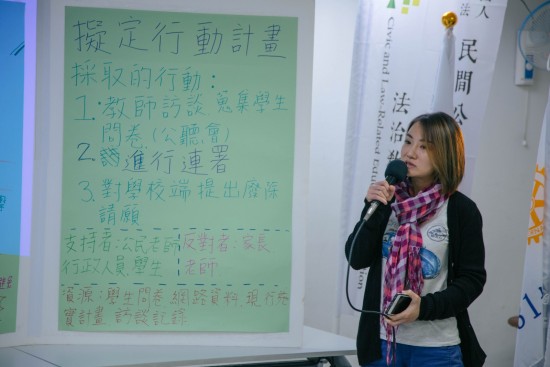 擬定行動計畫
採取的行動：
1.教師訪談 蒐集學生
問卷（公聽會）
2.進行連署
3.對學校端提出廢除
請願
支持者：公民老師
行政人員.學生
反對者：家長
老師
資源：學生問卷 網路資料 現行
實計畫 訪談記錄
Civic and Law-Related
法治
民間公